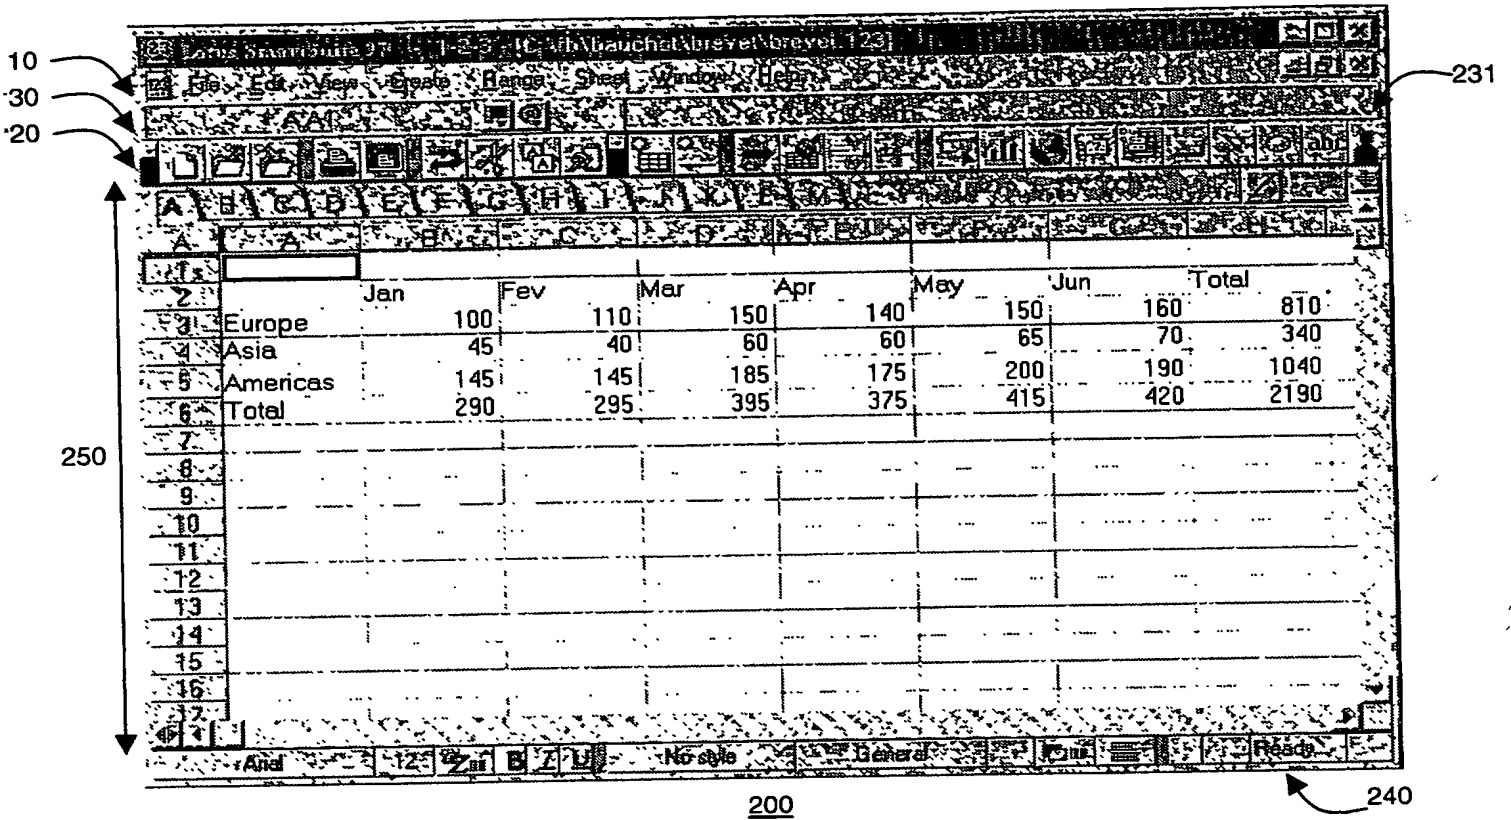 1-2-3 - [C:\th\bauchot\brevet\brevet.123]
10
File Edit View Create Range Sheet Window Help
231
30
A:A1
20
abc
A B C D E F G H I J K L M
A A B C D E F G H
1
2 Jan Fev Mar Apr May Jun Total
3 Europe 100 110 150 140 150 160 810
4 Asia 45 40 60 60 65 70 340
5 Americas 145 145 185 175 200 190 1040
6 Total 290 295 395 375 415 420 2190
7
250
8
9
10
11
12
13
14
15
16
17
Arial 12 B I U No style General Ready
240
200